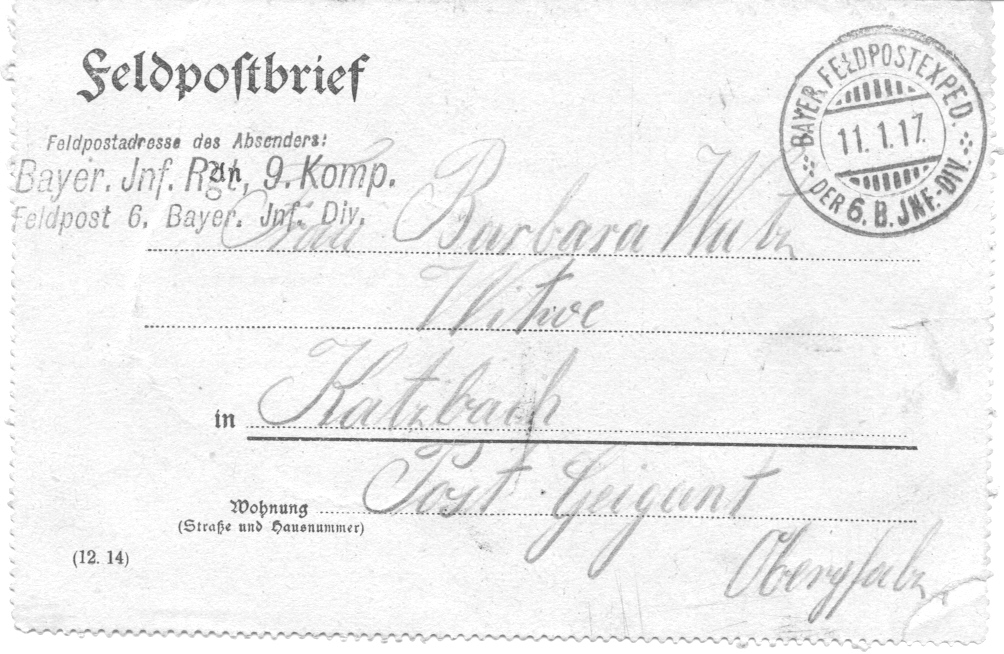 Feldpostbrief
BAYER. FELDPOSTEXPED.
11. 1. 17.
DER 6. B. JNF.-DIV.
Feldpostadresse des Absenders:
Bayer. Jnf. Rgt, 9. Komp.
Feldpost 6. Bayer. Jnf. Div.
Frau Barbara Wutz
Witwe
in Katzbach
Wohnung Post Geigant
(Straße und Hausnummer)
(12. 14)
Oberpfalz